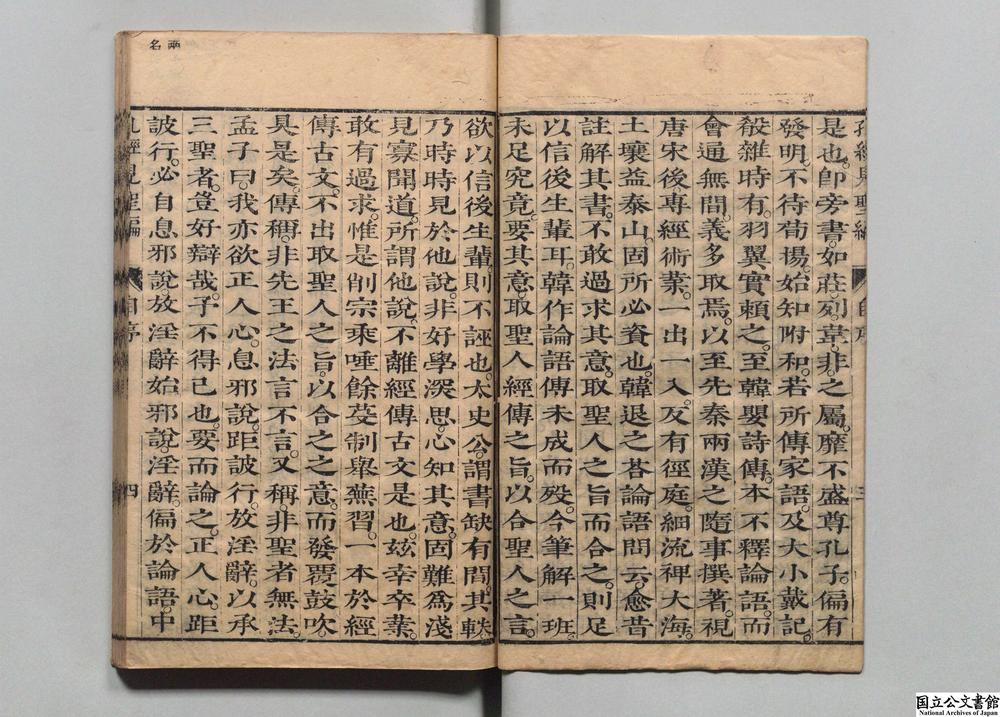 是也。卽旁書。如莊列韋非之屬。靡不盛尊孔子。偏有
發明。不待荀揚。始知附和。若所傳家語。及大小戴記。
殽雜時有。羽翼實賴之。至韓嬰詩傳。本不釋論語。而
會通無間。義多取焉。以至先秦兩漢之隨事撰著。視
唐宋後專經術業。一出一入。反有徑庭。細流裨大海。
土壤益泰山。固所必資也。韓退之荅論語問云。愈昔
註解其書。不敢過求其意。取聖人之旨而合之。則足
以信後生輩耳。韓作論語傳未成而歿。今筆解一班。
未足究竟。要其意。取聖人經傳之旨。以合聖人之言。
欲以信後生輩。則不誣也。太史公謂書缺有間。其軼
乃時時見於他說。非好學深思。心知其意。固難爲淺
見寡聞道。所謂他說。不離經傳古文是也。玆幸卒業。
敢有過求。惟是削宗乘唾餘。芟制舉蕪習。一本於經
傳古文。不出取聖人之旨。以合之之意。而發覆鼓吹
具是矣。傳稱。非先王之法言不言。又稱。非聖者無法。
孟子曰。我亦欲正人心。息邪說。距詖行。放淫辭。以承
三聖者。豈好辯哉。予不得已也。要而論之。正人心。距
詖行。必自息邪說放淫辭始。邪說。淫辭。偏於論語。中
自序
四
名 兩
国立公文書館
National Archives of Japan